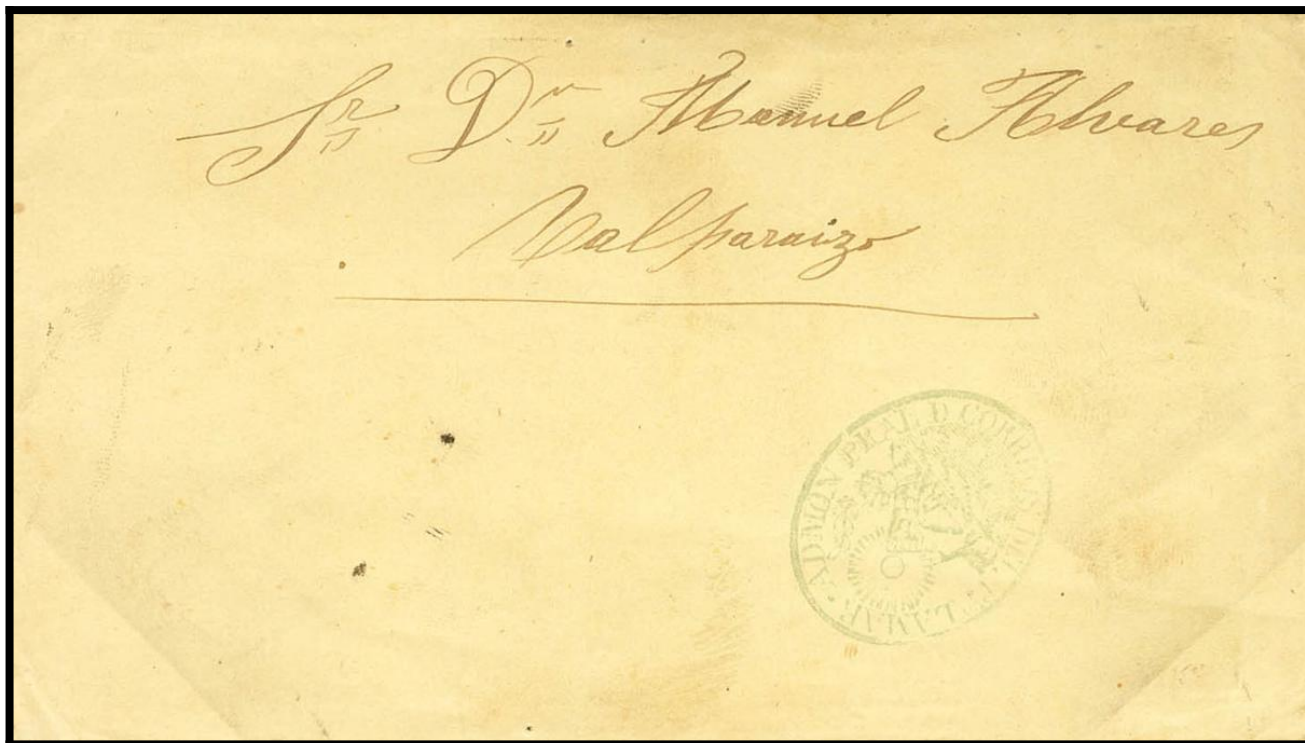 Sr. Dn. Manuel Alvares
Valparaizo
ADMON PRAL D CORREOS D LAMAR